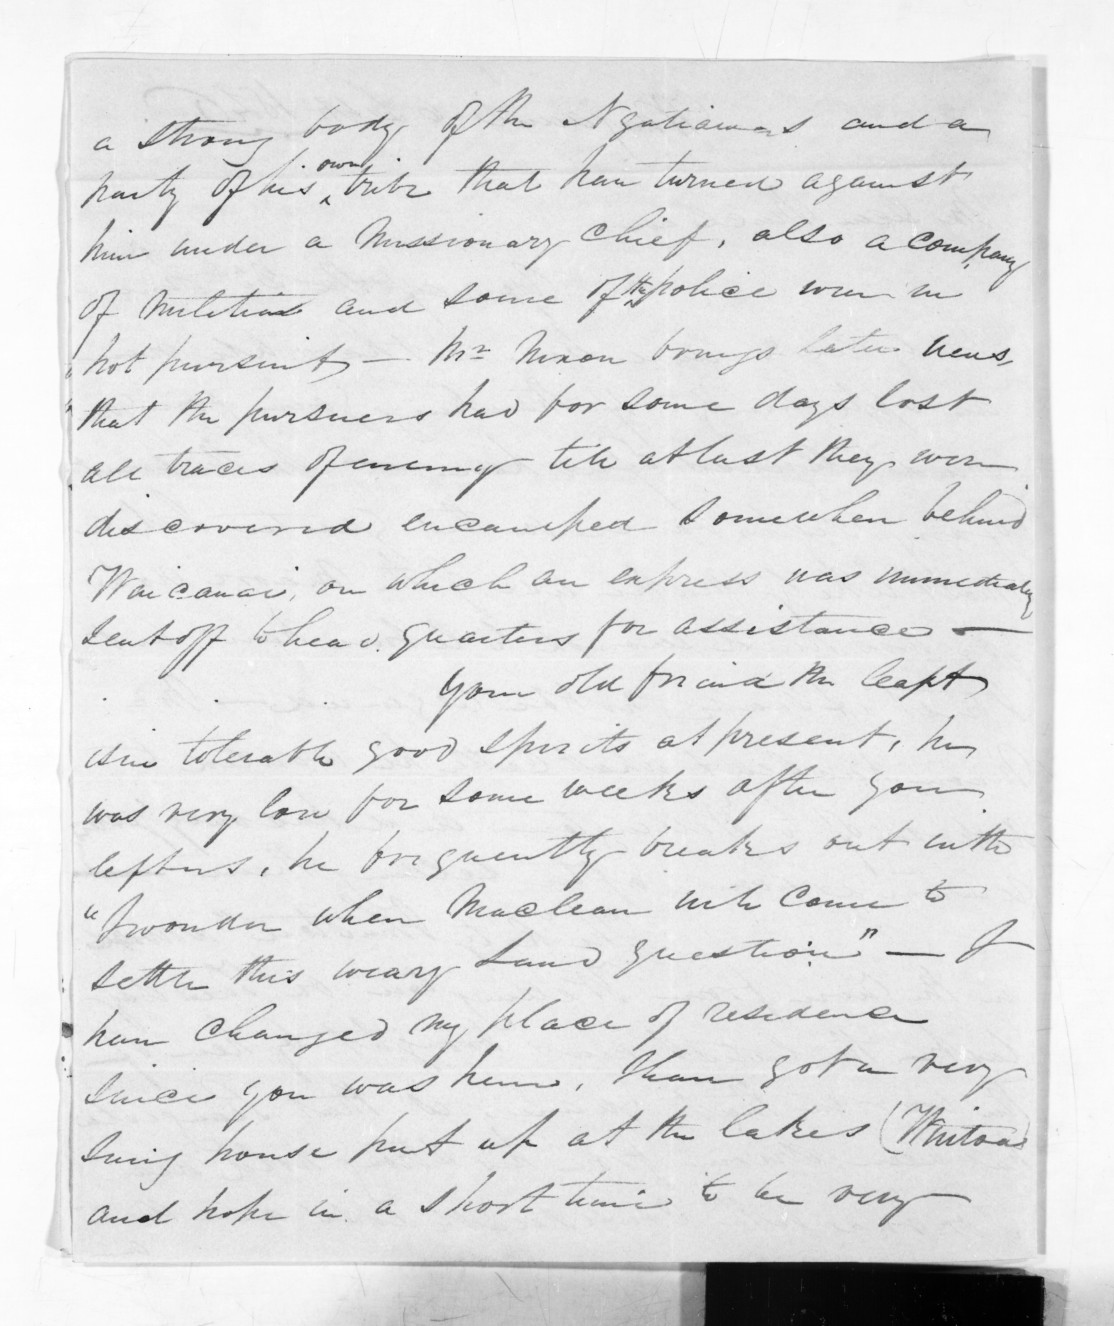 a strong body of the Ngatiawas and a
party of his own tribe that have turned against
him under a Missionary Chief, also a company
of Militia and some of the police were in
hot pursuit — Mr Nixon brings later news,
that the pursuers had for some days lost
all traces of enemy till at last they were
discovered encamped somewhere behind
Waicanai, on which an express was immediately
sent off to head quarters for assistance —
Your old friend the Capt
is in tolerable good spirits at present, he
was very low for some weeks after you
left us, he frequently breaks out with
"I wonder when Maclean will come to
settle this weary Land question" — I
have changed my place of residence
since you was here, I have got a very
snug house put up at the lakes
and hope in a short time to be very